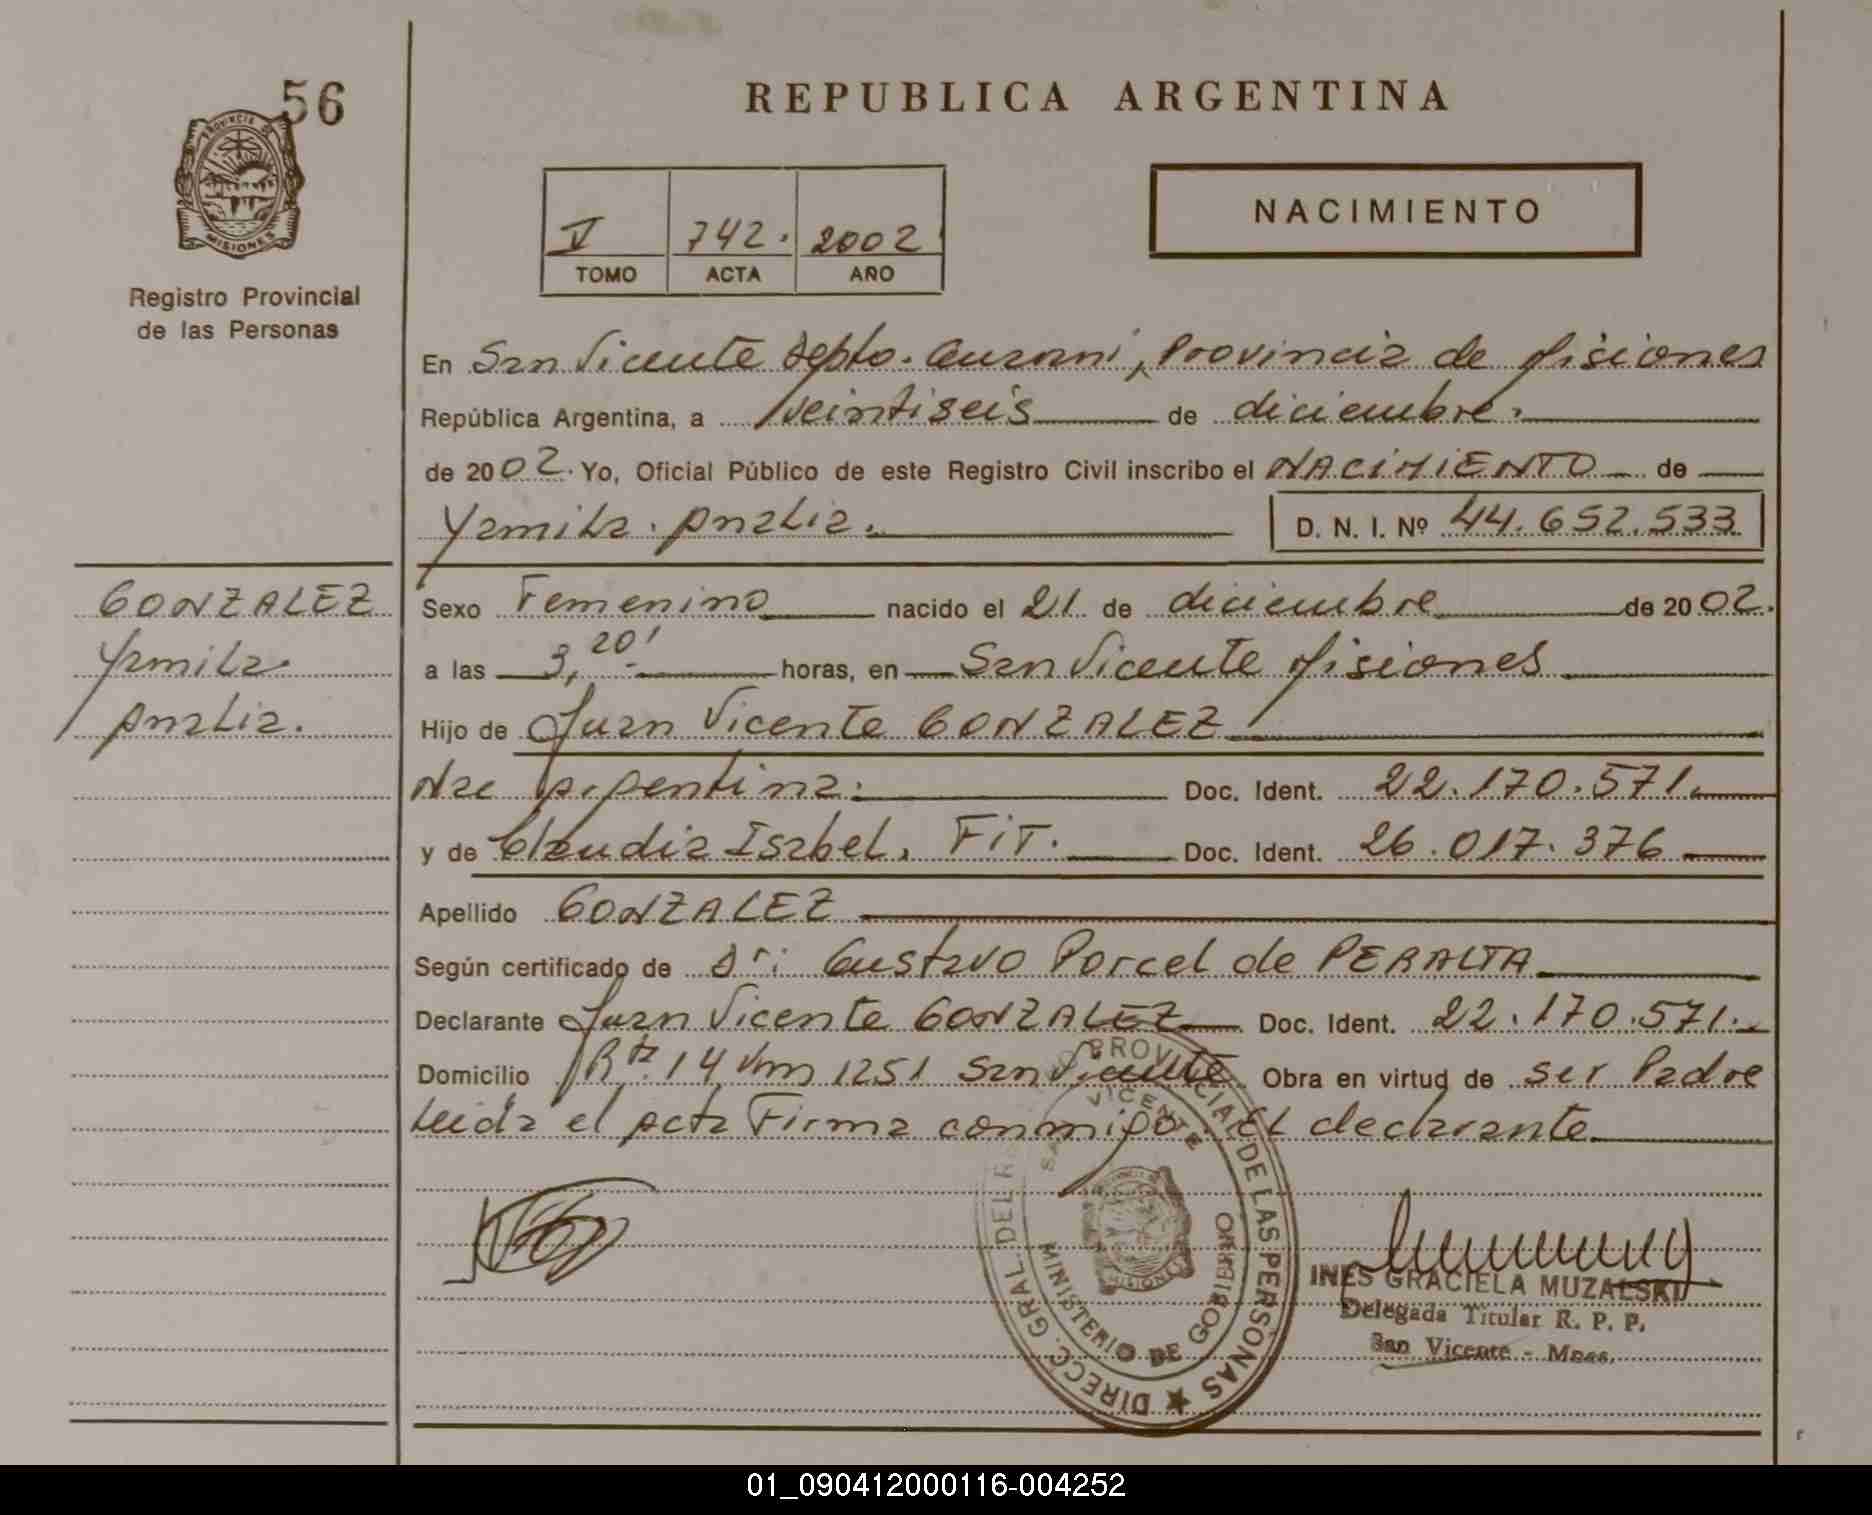 56
PROVINCIA DE
MISIONES
Registro Provincial
de las Personas
REPUBLICA ARGENTINA
V 742. 2002
TOMO ACTA AÑO
NACIMIENTO
En San Vicente Depto. Guarani, Provincia de Misiones
República Argentina, a veintiseis de diciembre.
de 2002. Yo, Oficial Público de este Registro Civil inscribo el NACIMIENTO de
Yamila Analia. D. N. I. Nº 44.652.533
GONZALEZ
Yamila
Analia.
Sexo Femenino nacido el 21 de diciembre de 2002.
a las 3,20' horas, en San Vicente Misiones
Hijo de Juan Vicente GONZALEZ
Nac Argentina. Doc. Ident. 22.170.571.
y de Claudia Isabel, FIT. Doc. Ident. 26.017.376
Apellido GONZALEZ
Según certificado de Dr: Gustavo Porcel de PERALTA
Declarante Juan Vicente GONZALEZ Doc. Ident. 22.170.571.
Domicilio Rta 14 Km 1251 San Vicente Obra en virtud de ser Padre
Leida el acta Firma conmigo El declarante
DIRECC. GRAL. DEL PROVINCIAL DE LAS PERSONAS
SAN VICENTE
MISIONES
MINISTERIO DE GOBIERNO
INES GRACIELA MUZALSKI
Delegada Titular R. P. P.
San Vicente - Mnes.
01_090412000116-004252